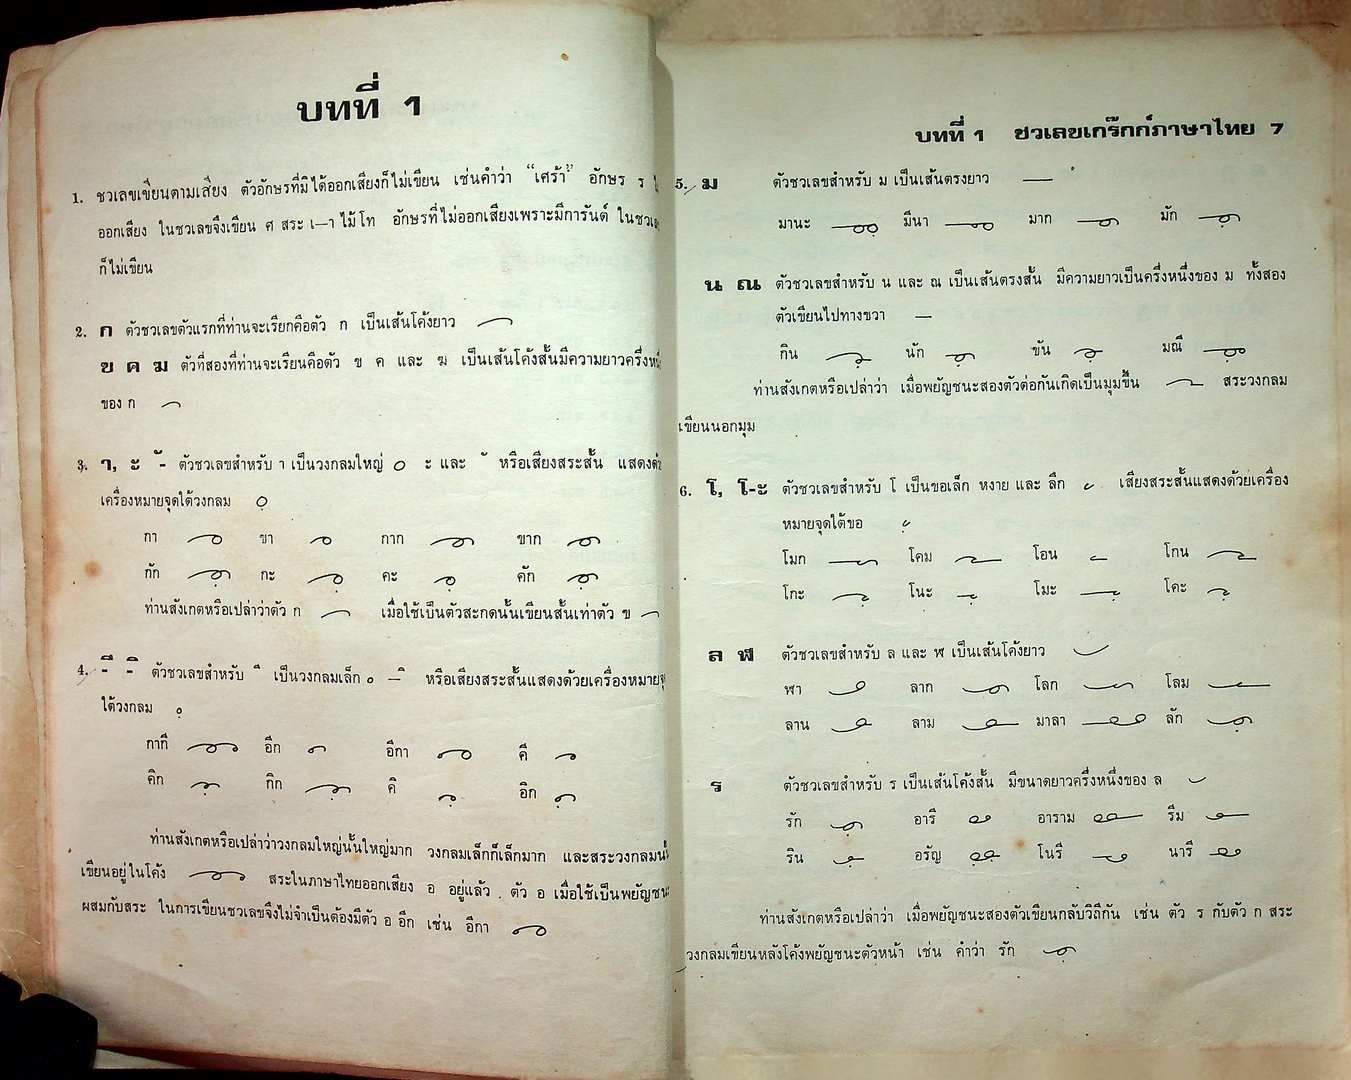 บทที่ 1
1. ชวเลขเขียนตามเสียง ตัวอักษรที่มิได้ออกเสียงก็ไม่เขียน เช่นคำว่า “เศร้า” อักษร ร
ออกเสียง ในชวเลขจึงเขียน ศ สระ เ—า ไม้โท อักษรที่ไม่ออกเสียงเพราะมีการันต์ ในชวเลข
ก็ไม่เขียน
2. ก ตัวชวเลขตัวแรกที่ท่านจะเรียกคือตัว ก เป็นเส้นโค้งยาว
ข ค ฆ ตัวที่สองที่ท่านจะเรียนคือตัว ข ค และ ฆ เป็นเส้นโค้งสั้นมีความยาวครึ่งหนึ่ง
ของ ก
3. า, ะ -ั ตัวชวเลขสำหรับ า เป็นวงกลมใหญ่ ะ และ ั หรือเสียงสระสั้น แสดงด้วย
เครื่องหมายจุดใต้วงกลม
กา ขา กาก ขาก
กัก กะ คะ คัก
ท่านสังเกตหรือเปล่าว่าตัว ก เมื่อใช้เป็นตัวสะกดนั้นเขียนสั้นเท่าตัว ข
4. -ี -ิ ตัวชวเลขสำหรับ ี เป็นวงกลมเล็ก —ิ หรือเสียงสระสั้นแสดงด้วยเครื่องหมายจุด
ใต้วงกลม
กากี อีก อีกา คี
คิก กิก คิ อิก
ท่านสังเกตหรือเปล่าว่าวงกลมใหญ่นั้นใหญ่มาก วงกลมเล็กก็เล็กมาก และสระวงกลมนั้น
เขียนอยู่ในโค้ง สระในภาษาไทยออกเสียง อ อยู่แล้ว ตัว อ เมื่อใช้เป็นพยัญชนะ
ผสมกับสระ ในการเขียนชวเลขจึงไม่จำเป็นต้องมีตัว อ อีก เช่น อีกา
บทที่ 1 ชวเลขเกร๊กก์ภาษาไทย 7
5. ม ตัวชวเลขสำหรับ ม เป็นเส้นตรงยาว
มานะ มีนา มาก มัก
น ณ ตัวชวเลขสำหรับ น และ ณ เป็นเส้นตรงสั้น มีความยาวเป็นครึ่งหนึ่งของ ม ทั้งสอง
ตัวเขียนไปทางขวา
กิน นัก ขัน มณี
ท่านสังเกตหรือเปล่าว่า เมื่อพยัญชนะสองตัวต่อกันเกิดเป็นมุมขึ้น สระวงกลม
เขียนนอกมุม
6. โ, โ-ะ ตัวชวเลขสำหรับ โ เป็นขอเล็ก หงาย และ ลึก เสียงสระสั้นแสดงด้วยเครื่อง
หมายจุดใต้ขอ
โมก โคม โอน โกน
โกะ โนะ โมะ โคะ
ล ฬ ตัวชวเลขสำหรับ ล และ ฬ เป็นเส้นโค้งยาว
ฬา ลาก โลก โลม
ลาน ลาม มาลา ลัก
ร ตัวชวเลขสำหรับ ร เป็นเส้นโค้งสั้น มีขนาดยาวครึ่งหนึ่งของ ล
รัก อารี อาราม รีม
ริน อรัญ โนรี นารี
ท่านสังเกตหรือเปล่าว่า เมื่อพยัญชนะสองตัวเขียนกลับวิถีกัน เช่น ตัว ร กับตัว ก สระ
วงกลมเขียนหลังโค้งพยัญชนะตัวหน้า เช่น คำว่า รัก